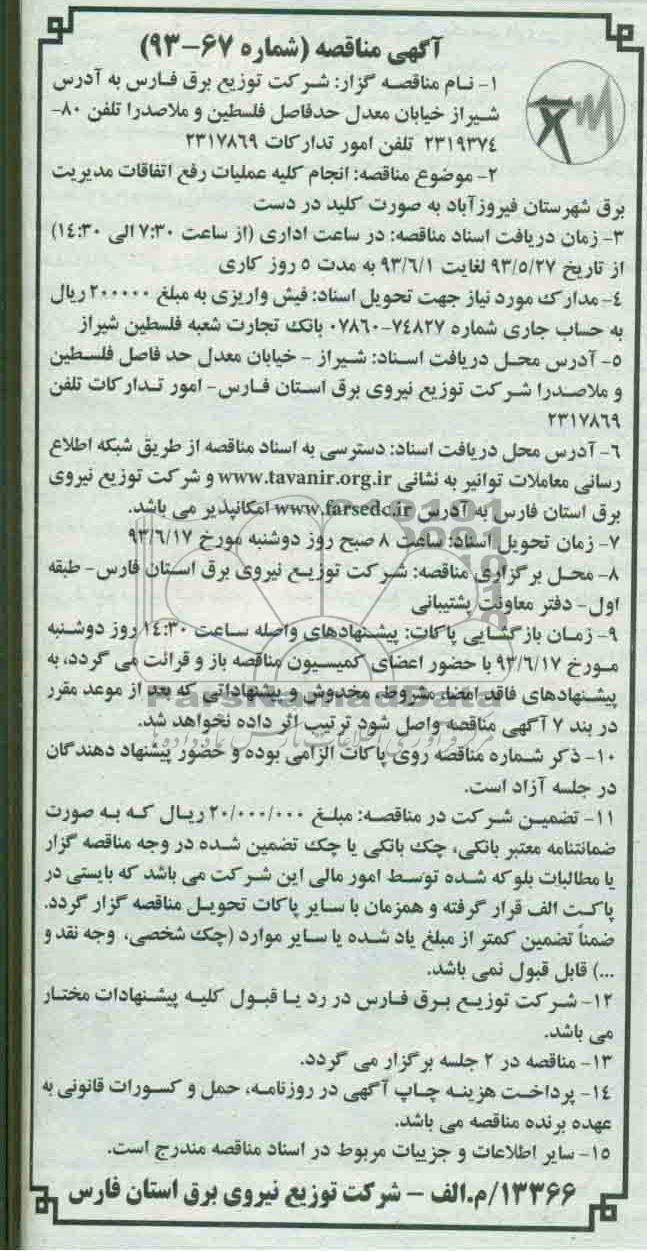 آگهی مناقصه (شماره ۶۷-۹۳)
۱- نـام مناقصـه گزار: شـرکت توزیع برق فـارس به آدرس
شـیراز خیابان معدل حدفاصل فلسطین و ملاصدرا تلفن ۸۰-
۲۳۱۹۳۷٤ تلفن امور تدارکات ۲۳۱۷۸٦۹
۲- موضوع مناقصه: انجام کلیه عملیات رفع اتفاقات مدیریت
برق شهرستان فیروزآباد به صورت کلید در دست
۳- زمان دریافت اسناد مناقصه: در ساعت اداری (از ساعت ۷:۳۰ الی ۱٤:۳۰)
از تاریخ ۹۳/۵/۲۷ لغایت ۹۳/٦/۱ به مدت ۵ روز کاری
٤- مدارک مورد نیاز جهت تحویل اسناد: فیش واریزی به مبلغ ۲۰۰۰۰۰ ریال
به حساب جاری شماره ۷٤۸۲۷-۰۷۸٦۰ بانک تجارت شعبه فلسطین شیراز
۵- آدرس محـل دریافت اسـناد: شـیراز - خیابان معدل حد فاصل فلسـطین
و ملاصـدرا شـرکت توزیع نیروی برق اسـتان فـارس- امور تـدارکات تلفن
۲۳۱۷۸٦۹
٦- آدرس محل دریافت اسناد: دسترسی به اسناد مناقصه از طریق شبکه اطلاع
رسانی معاملات توانیر به نشانی www.tavanir.org.ir و شرکت توزیع نیروی
برق استان فارس به آدرس www.farsedc.ir امکانپذیر می باشد.
۷- زمان تحویل اسناد: ساعت ۸ صبح روز دوشنبه مورخ ۹۳/٦/۱۷
۸- محـل برگزاری مناقصه: شـرکت توزیـع نیروی برق اسـتان فارس- طبقه
اول- دفتر معاونت پشتیبانی
۹- زمـان بازگشـایی پاکات: پیشـنهادهای واصله سـاعت ۱٤:۳۰ روز دوشـنبه
مـورخ ۹۳/٦/۱۷ با حضور اعضای کمیسیون مناقصه باز و قرائت می گردد، به
پیشـنهادهای فاقد امضا، مشروط، مخدوش و پیشنهاداتی که بعد از موعد مقرر
در بند ۷ آگهی مناقصه واصل شود ترتیب اثر داده نخواهد شد.
۱۰- ذکر شـماره مناقصه روی پاکات الزامی بوده و حضور پیشنهاد دهندگان
در جلسه آزاد است.
۱۱- تضمیـن شـرکت در مناقصـه: مبلـغ ۲۰/۰۰۰/۰۰۰ ریـال کـه بـه صورت
ضمانتنامه معتبر بانکی، چک بانکی یا چک تضمین شـده در وجه مناقصه گزار
یا مطالبات بلوکه شـده توسـط امور مالی این شـرکت می باشد که بایستی در
پاکـت الف قرار گرفته و همزمان با سـایر پاکات تحویـل مناقصه گزار گردد.
ضمناً تضمین کمتر از مبلغ یاد شـده یا سـایر موارد (چک شخصی، وجه نقد و
...) قابل قبول نمی باشد.
۱۲- شـرکت توزیـع بـرق فـارس در رد یـا قبـول کلیـه پیشـنهادات مختـار
می باشد.
۱۳- مناقصه در ۲ جلسه برگزار می گردد.
۱٤- پرداخـت هزینـه چـاپ آگهی در روزنامـه، حمل و کسـورات قانونی به
عهده برنده مناقصه می باشد.
۱۵- سایر اطلاعات و جزییات مربوط در اسناد مناقصه مندرج است.
۱۳۳۶۶/م.الف - شرکت توزیع نیروی برق استان فارس
ParsNamadData